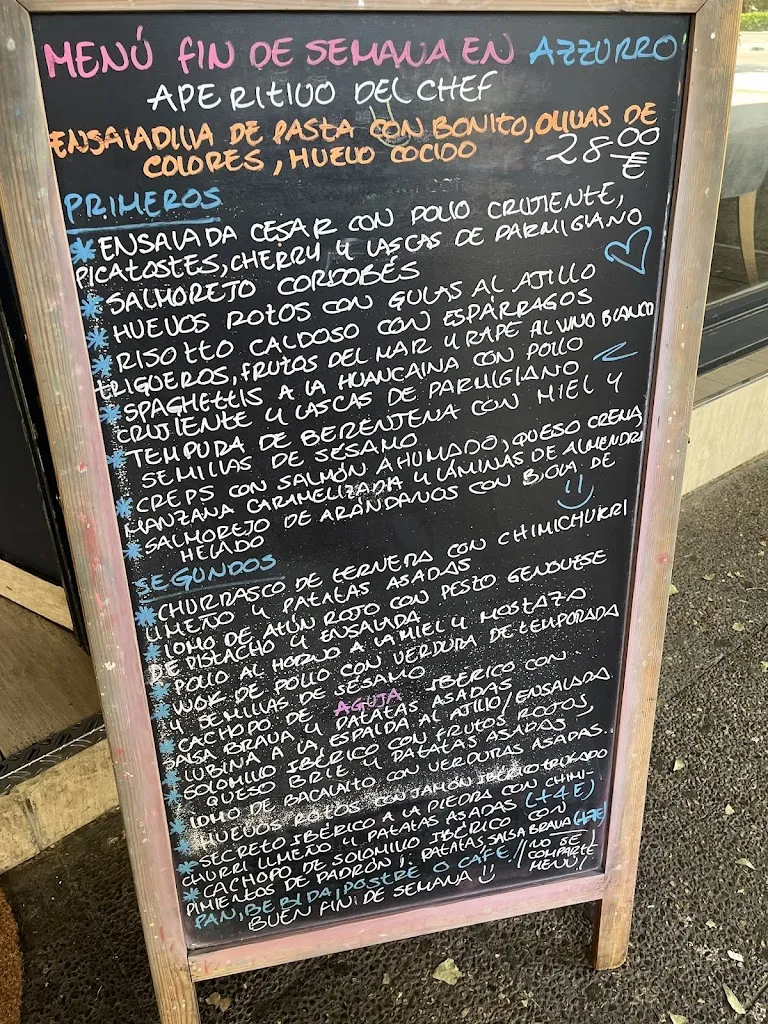 MENÚ FIN DE SEMANA EN AZZURRO
APERITIVO DEL CHEF
ENSALADILLA DE PASTA CON BONITO, OLIVAS DE
COLORES, HUEVO COCIDO
28.00 €
PRIMEROS
* ENSALADA CESAR CON POLLO CRUJIENTE,
PICATOSTES, CHERRY Y LASCAS DE PARMIGIANO
* SALMOREJO CORDOBÉS
* HUEVOS ROTOS CON GULAS AL AJILLO
* RISOTTO CALDOSO CON ESPÁRRAGOS
TRIGUEROS, FRUTOS DEL MAR Y RAPE AL VINO BLANCO
* SPAGHETTIS A LA HUANCAINA CON POLLO
CRUJIENTE Y LASCAS DE PARMIGIANO
* TEMPURA DE BERENJENA CON MIEL Y
SEMILLAS DE SÉSAMO
* CREPS CON SALMÓN AHUMADO, QUESO CREMA,
MANZANA CARAMELIZADA Y LÁMINAS DE ALMENDRA
* SALMOREJO DE ARÁNDANOS CON BOLA DE
HELADO
SEGUNDOS
* CHURRASCO DE TERNERA CON CHIMICHURRI
LIMEÑO Y PATATAS ASADAS
* LOMO DE ATÚN ROJO CON PESTO GENOVESE
DE PISTACHO Y ENSALADA
* POLLO AL HORNO A LA MIEL Y MOSTAZA
* WOK DE POLLO CON VERDURA DE TEMPORADA
Y SEMILLAS DE SÉSAMO
* CACHOPO DE AGUJA IBÉRICO CON
SALSA BRAVA Y PATATAS ASADAS
* LUBINA A LA ESPALDA AL AJILLO/ENSALADA
* SOLOMILLO IBÉRICO CON FRUTOS ROJOS
QUESO BRIE Y PATATAS ASADAS
* LOMO DE BACALAITO CON VERDURAS ASADAS..
* HUEVOS ROTOS CON JAMÓN IBÉRICO TRUFADO
* SECRETO IBÉRICO A LA PIEDRA CON CHIMI-
CHURRI LIMEÑO Y PATATAS ASADAS (+4€)
* CACHOPO DE SOLOMILLO IBÉRICO CON
PIMIENTOS DE PADRÓN Y PATATAS SALSA BRAVA
PAN, BEBIDA, POSTRE O CAFÉ!!
BUEN FIN DE SEMANA
NO SE
COMPARTE
MENÚ!